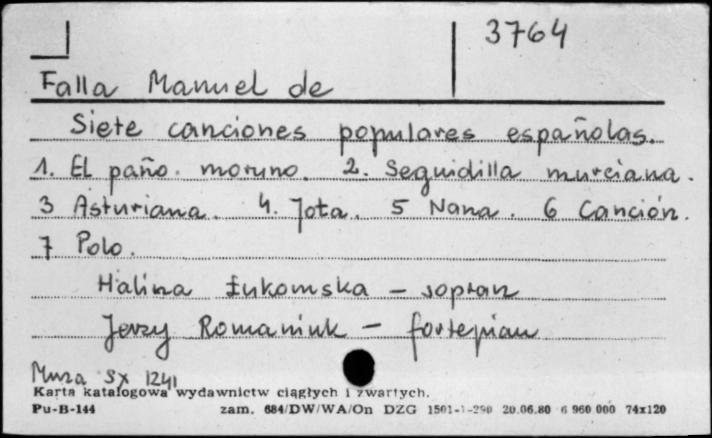 3764
Falla Manuel de
Siete canciones populares españolas.
1. El paño moruno. 2. Seguidilla murciana.
3 Asturiana. 4. Jota. 5 Nana. 6 Canción.
7 Polo.
Halina Łukomska - sopran
Jerzy Romaniuk - fortepian
Muza SX 1241
Karta katalogowa wydawnictw ciągłych i zwartych.
Pu-B-144 zam. 684/DW/WA/On DZG 1501-1-290 20.06.80 6 960 000 74x120